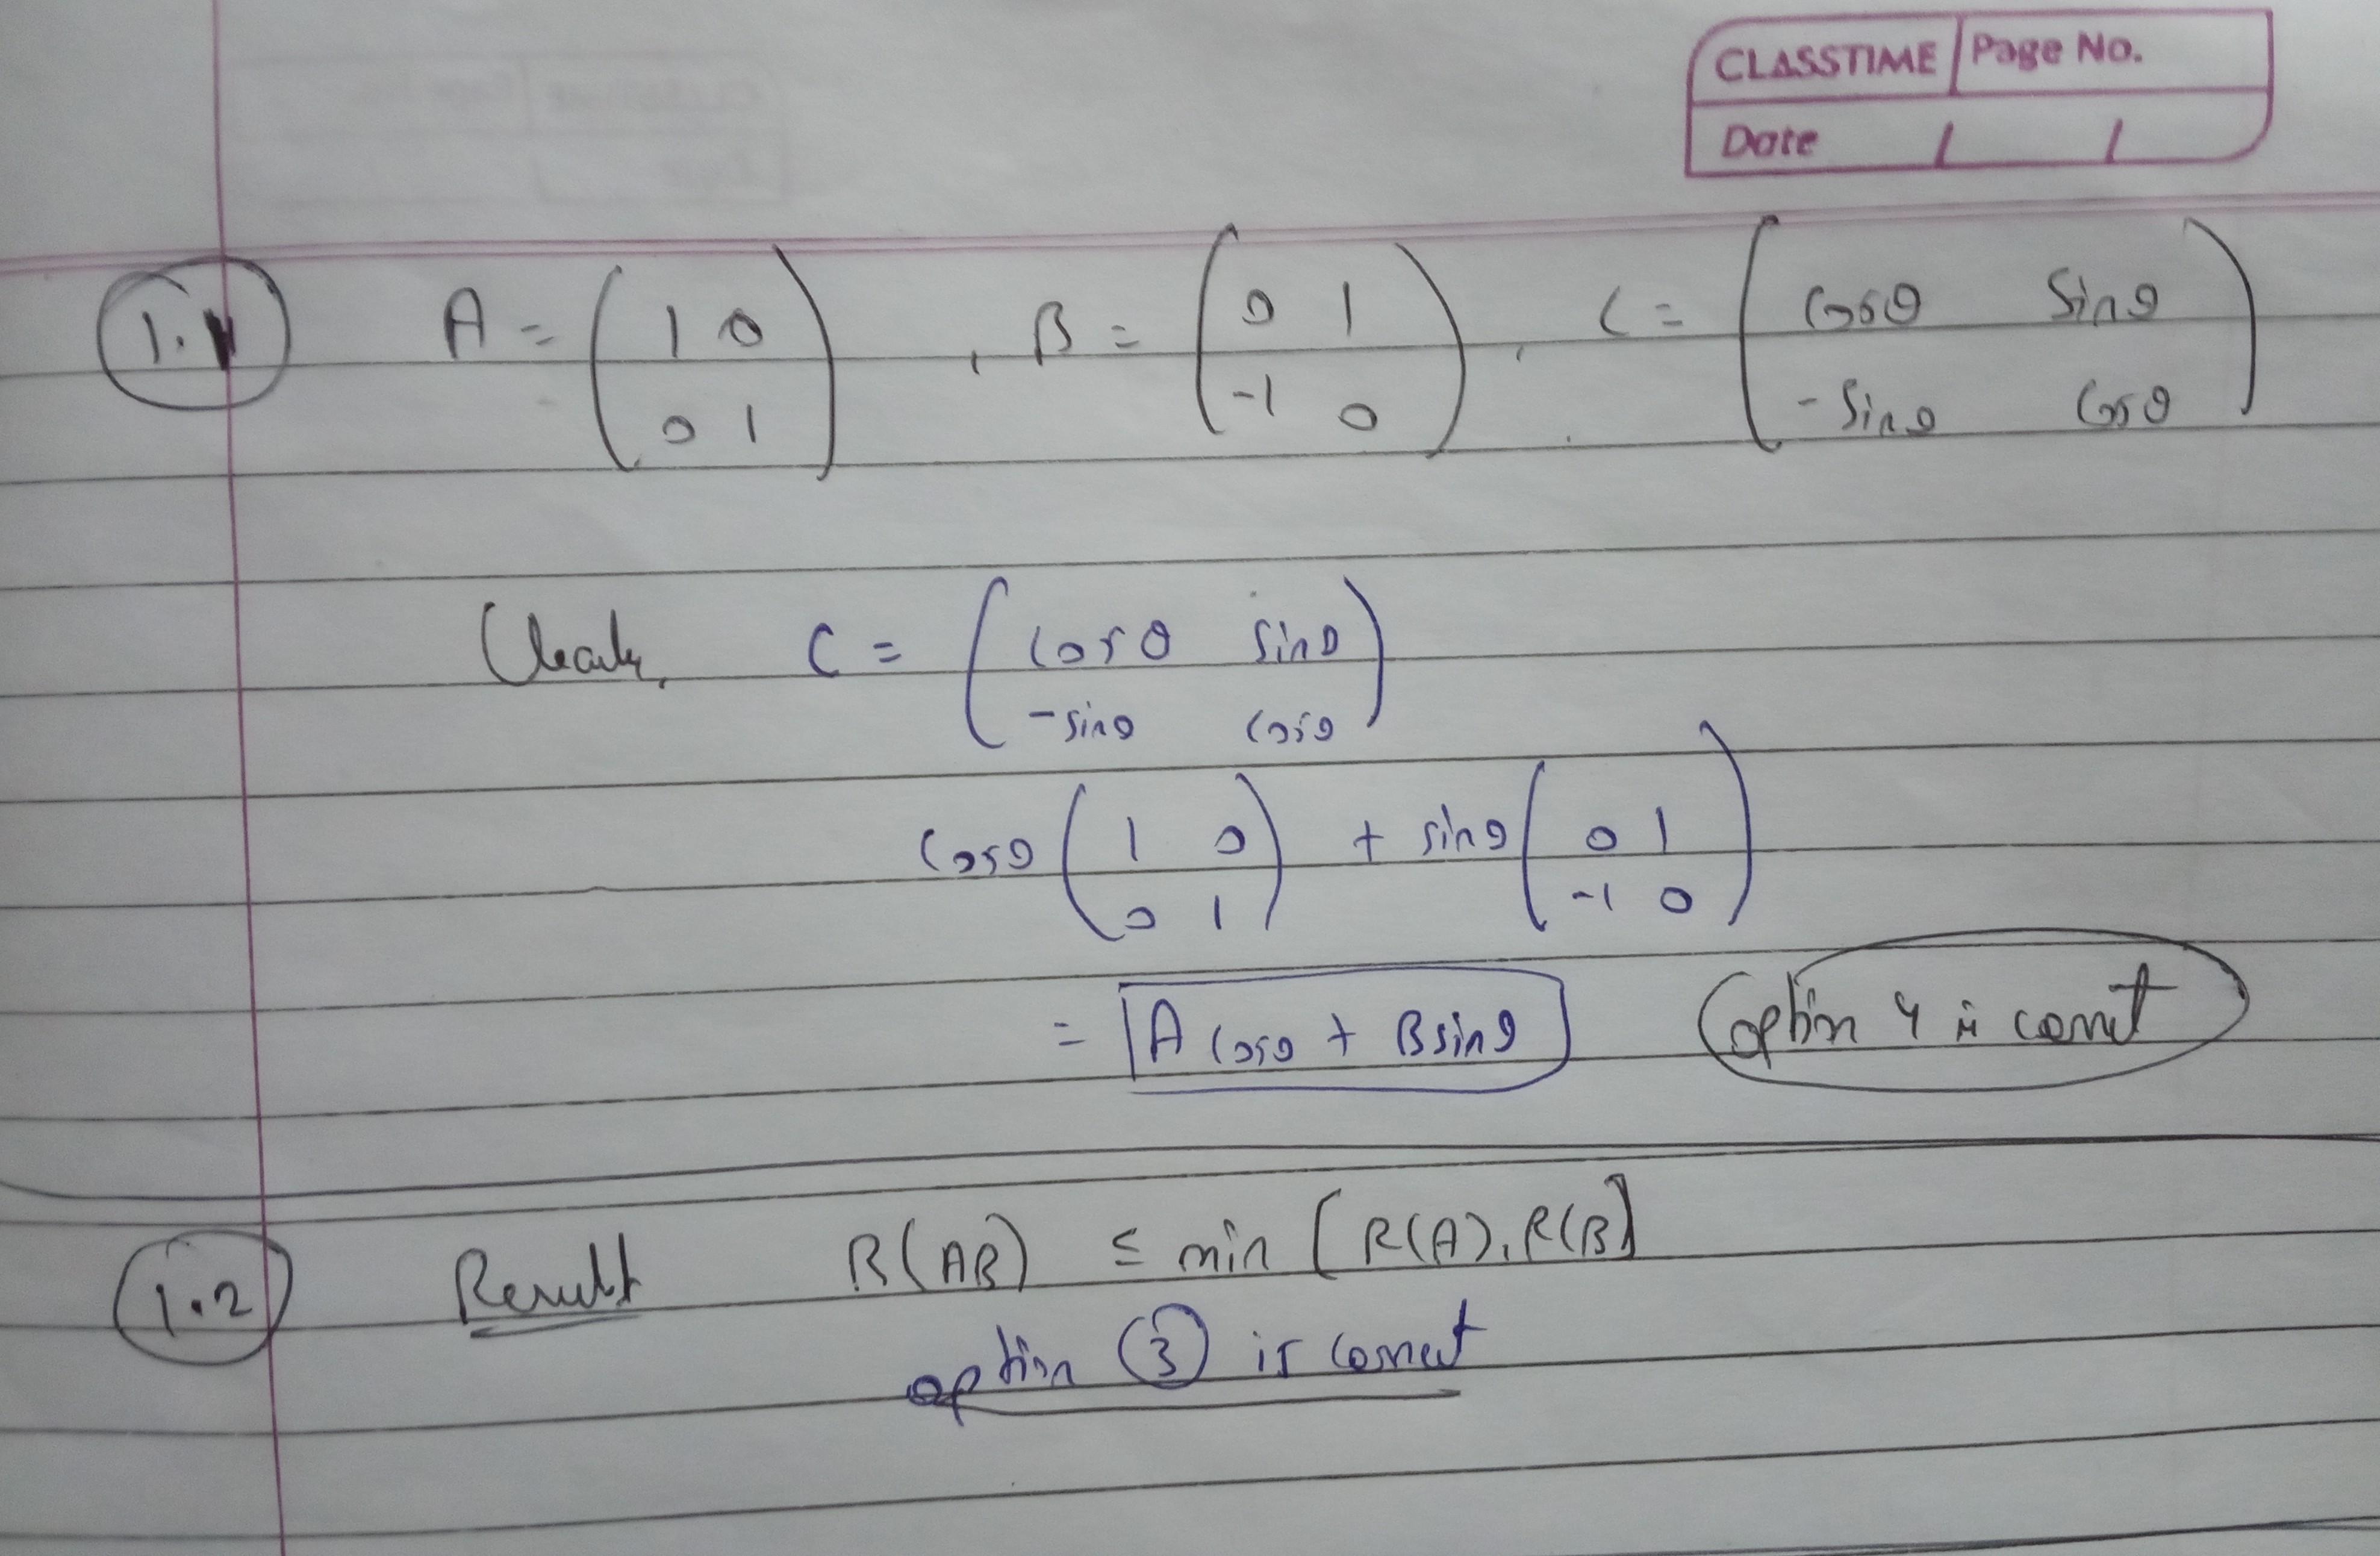 CLASSTIME Page No.
Date / /
1.1 A = ( 1 0 , B = ( 0 1 , C = ( cosθ sinθ
0 1 ) -1 0 ) -sinθ cosθ )
Clearly, C = ( cosθ sinθ
-sinθ cosθ )
cosθ ( 1 0 ) + sinθ ( 0 1
0 1 -1 0 )
= A cosθ + B sinθ option 4 is correct
1.2 Result R(AB) ≤ min [R(A), R(B]
option ③ is correct